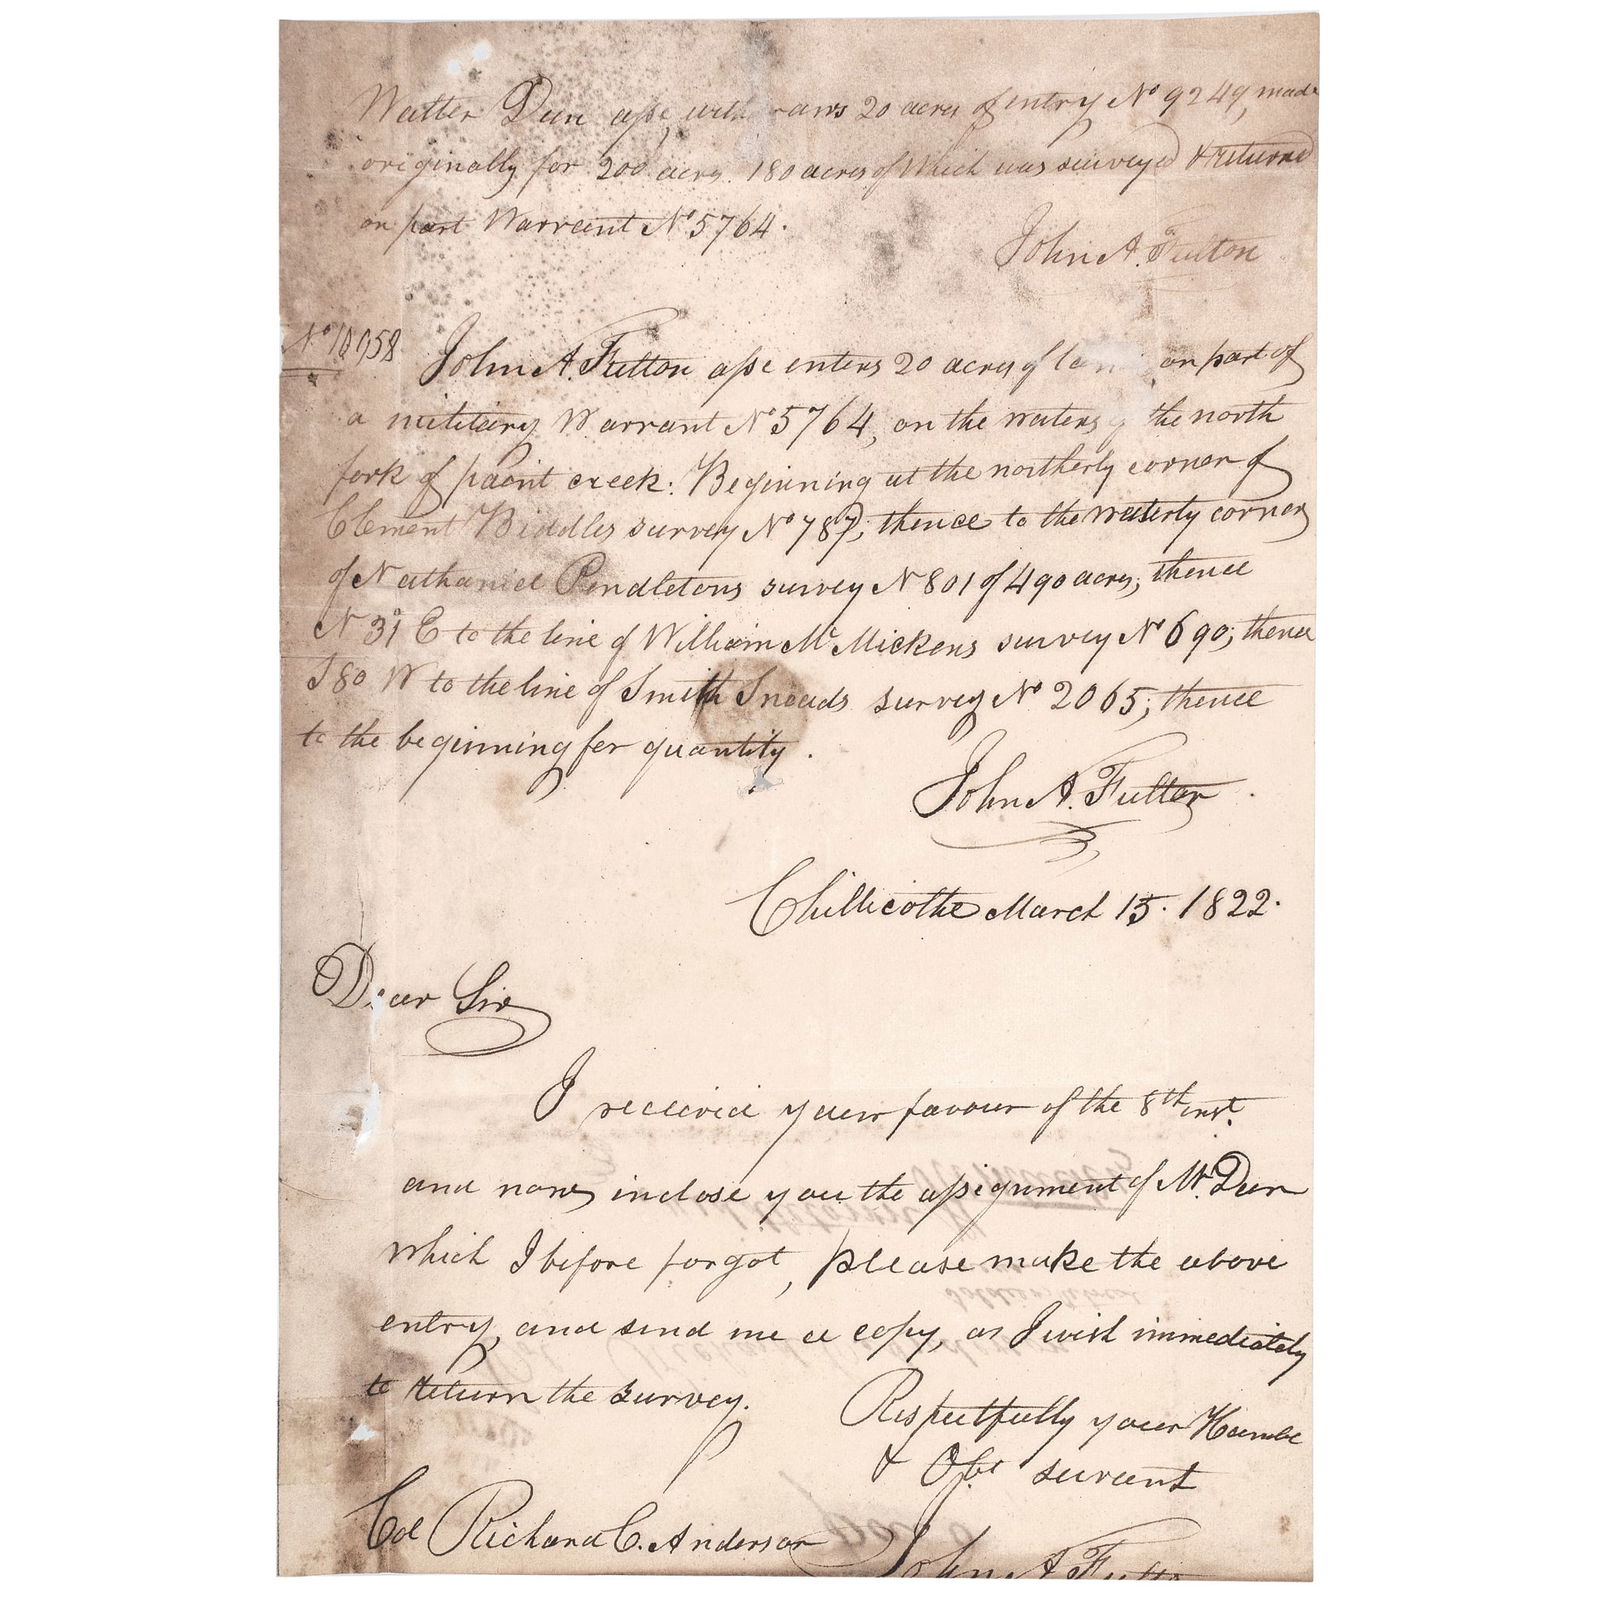 Walter Dun asse withdraws 20 acres of entry No 9249, made
originally for 200 acres. 180 acres of Which was surveyed & returned
on part Warrant No 5764.
John A. Fulton
No 10958
John A. Fulton asse enters 20 acres of on part of
a military Warrant No 5764, on the waters of the north
fork of paint creek: Beginning at the northerly corner of
Clement Biddles survey No 787, thence to the westerly corner
of Nathaniel Pendletons survey No 801 of 490 acres; thence
N 31° E to the line of William McMickens survey No 690; thence
S 80 W to the line of Smith Sneads survey No. 2065; thence
to the beginning for quantity.
John A. Fulton
Chillicothe March 15. 1822.
Dear Sir
I received your favour of the 8th inst.
and now inclose you the assignment of Mr. Dun
which I before forgot, please make the above
entry, and send me a copy, as I wish immediately
to return the survey.
Respectfully your Humbe
& Obt servant
Col Richard C. Anderson
John A Fulton